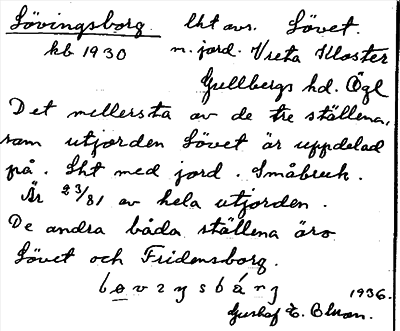 Lövingsborg lht avs. Lövet.
kb 1930 n. jord. Vreta Kloster
Gullbergs hd. Ögl
Det mellersta av de tre ställena,
som utjorden Lövet är uppdelad
på. Lht med jord. Småbruk.
Är 23/81 av hela utjorden.
De andra båda ställena äro
Lövet och Fridensborg.
1936.
Gustaf E. Olsson.